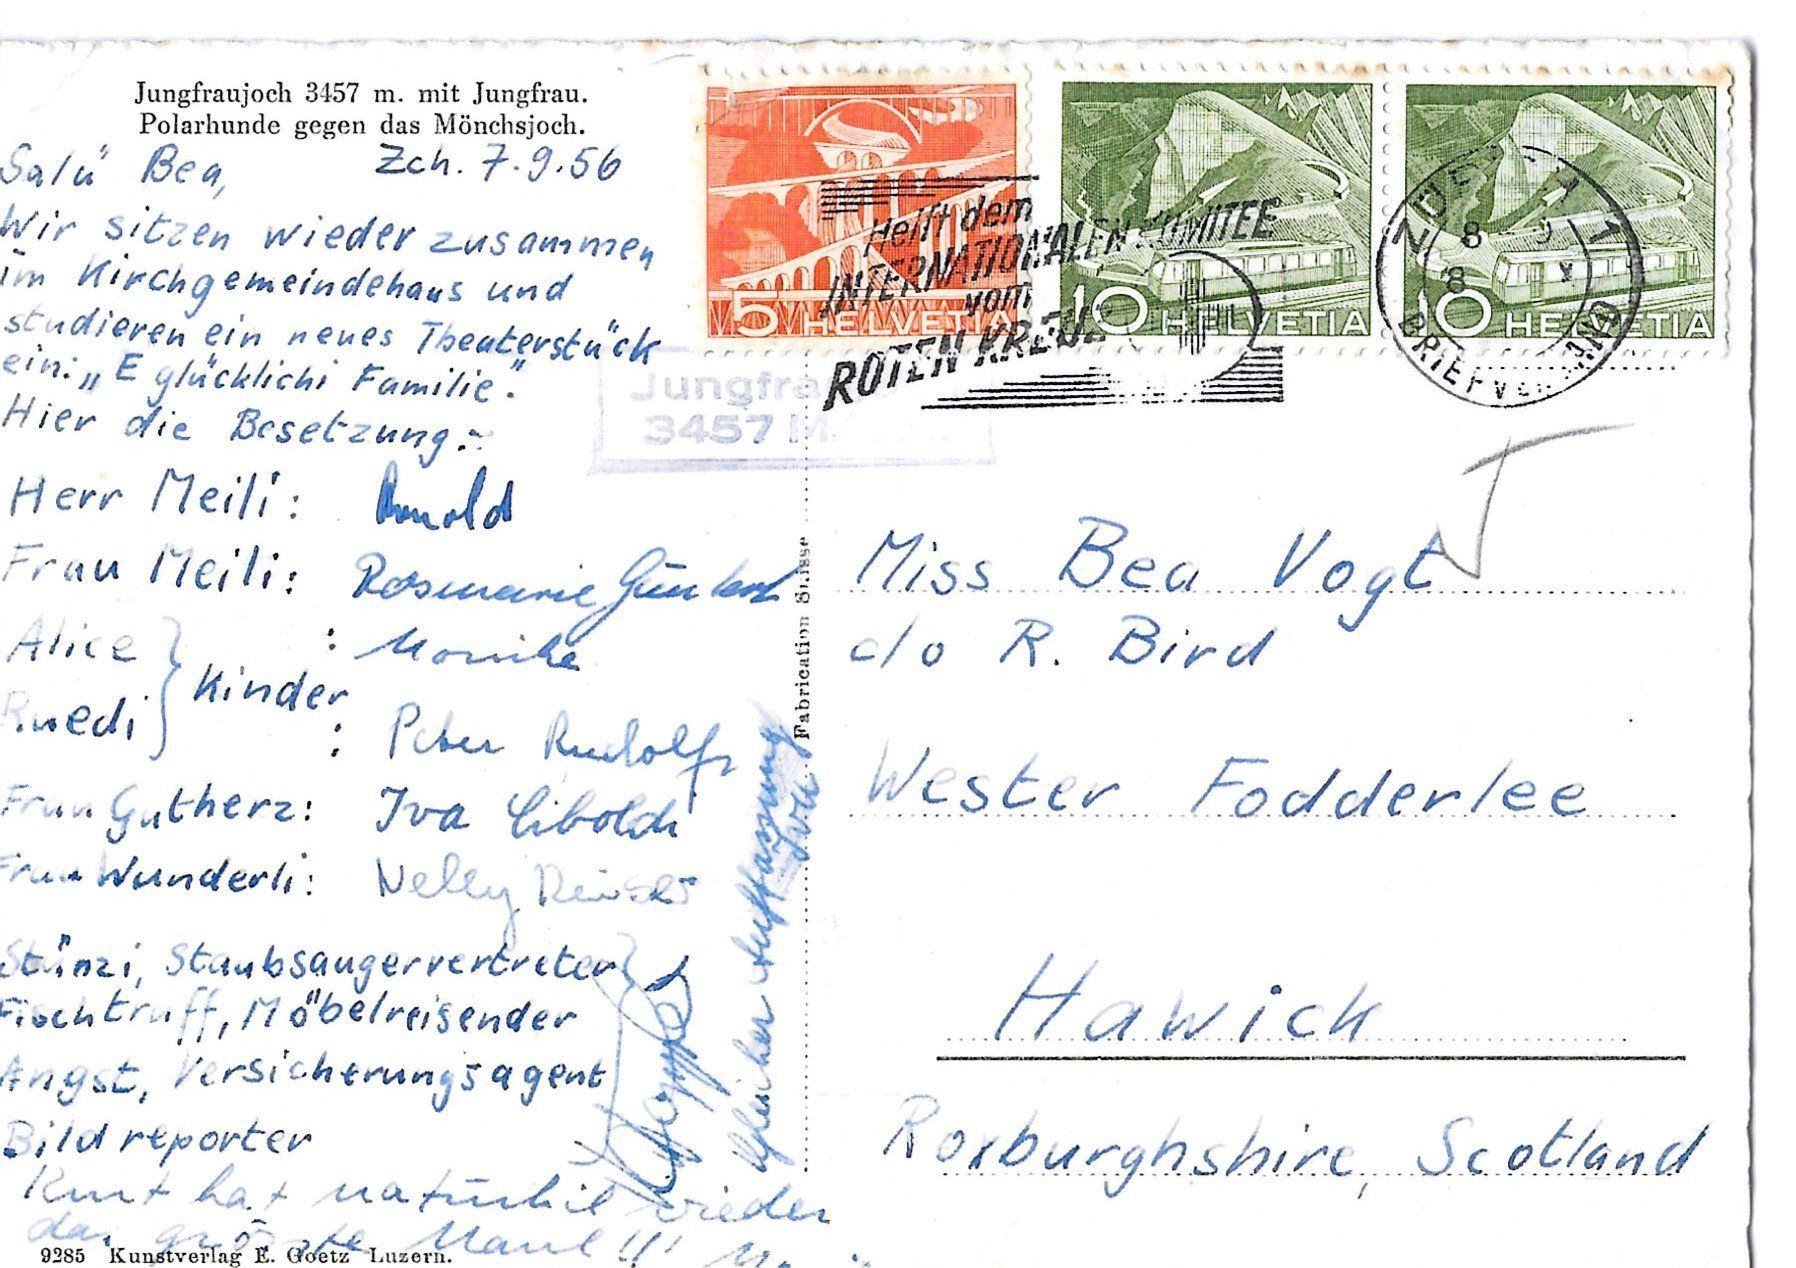 Jungfraujoch 3457 m. mit Jungfrau.
Polarhunde gegen das Mönchsjoch.
Salü Bea, Zch. 7.9.56
Wir sitzen wieder zusammen
im Kirchgemeindehaus und
studieren ein neues Theaterstück
ein: „E glücklichi Familie".
Hier die Besetzung:
Herr Meili: Arnold
Frau Meili: Rosmarie
Alice : Monika
Kinder
Ruedi : Peter Rudolf
Frau Gutherz: Iva
Frau Wunderli: Nelly
Stünzi, Staubsaugervertreter
Fischtruff, Möbelreisender
Angst, Versicherungsagent
Bildreporter
Kurt hat natürlich wieder
das grösste Maul!!!
Gleicher Auffassung
9285 Kunstverlag E. Goetz Luzern.
Fabrication Suisse
5 HELVETIA
10 HELVETIA
10 HELVETIA
Helft dem
INTERNATIONALEN KOMITEE
vom
ROTEN KREUZ
ZÜRICH 1
8
BRIEFVERSAND
Jungfraujoch
3457
Miss Bea Vogt
c/o R. Bird
Wester Fodderlee
Hawick
Roxburghshire, Scotland